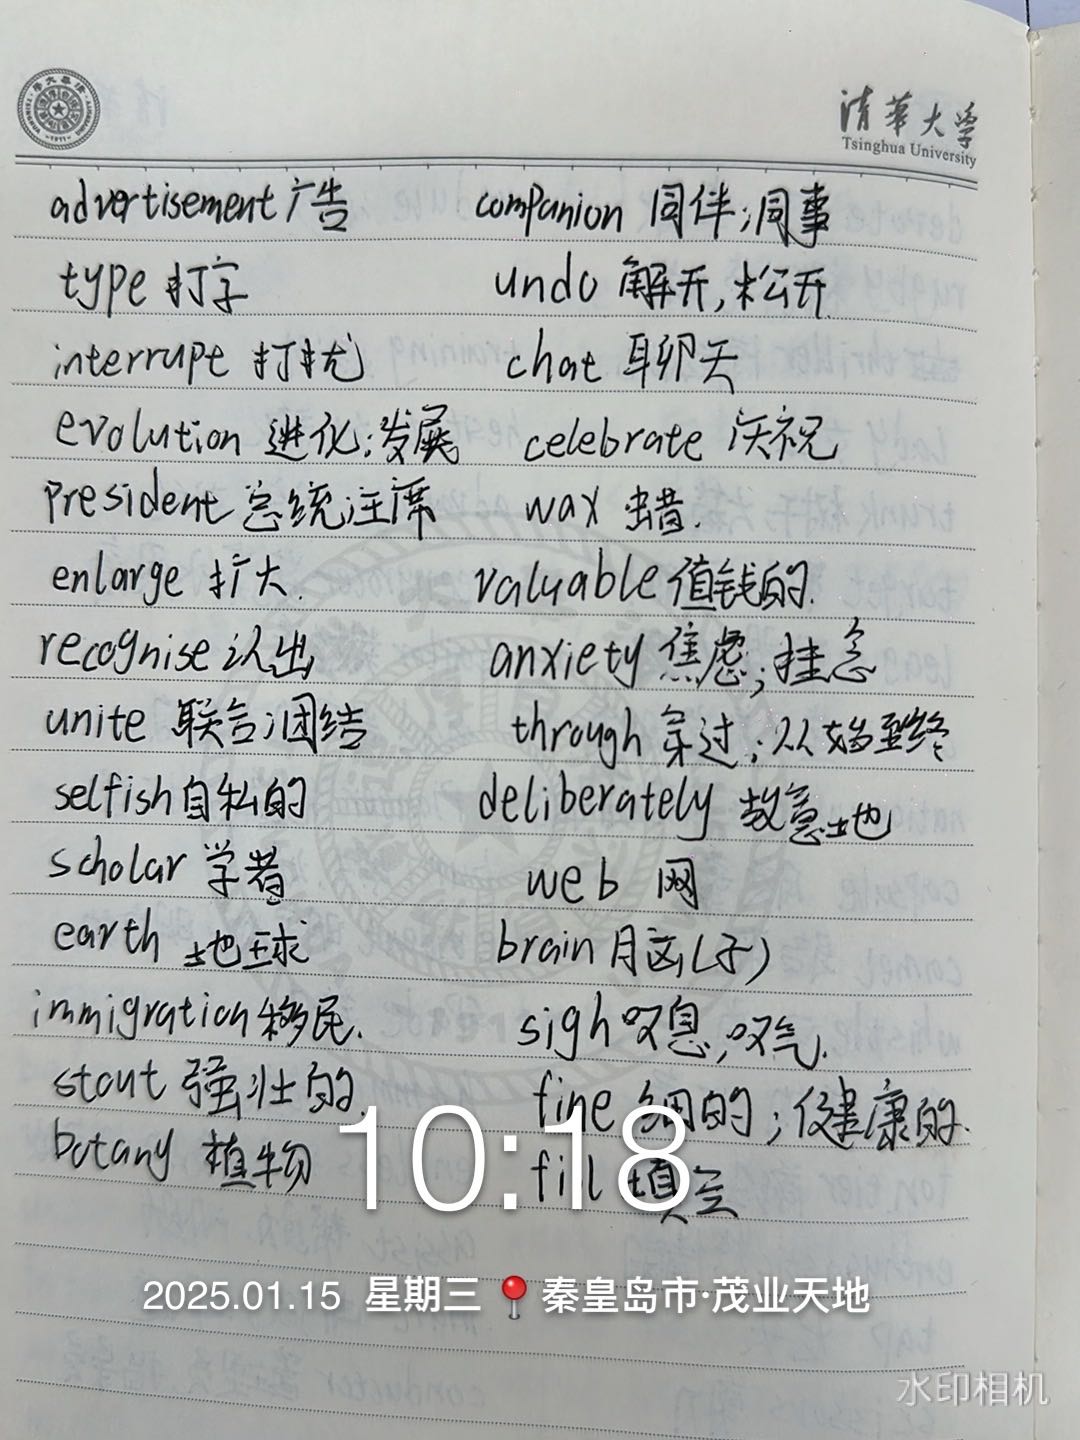 清华大学
Tsinghua University
advertisement 广告 companion 同伴;同事
type 打字 undo 解开,松开
interrupt 打扰 chat 聊天
evolution 进化;发展 celebrate 庆祝
president 总统 主席 wax 蜡.
enlarge 扩大. valuable 值钱的.
recognise 认出 anxiety 焦虑;挂念
unite 联合;团结 through 穿过;从始至终
selfish 自私的 deliberately 故意地
scholar 学者 web 网
earth 地球 brain 脑(子)
immigration 移民. sigh 叹息,叹气.
stout 强壮的. fine 细的;健康的.
botany 植物 fill 填空
10:18
2025.01.15 星期三 秦皇岛市·茂业天地
水印相机